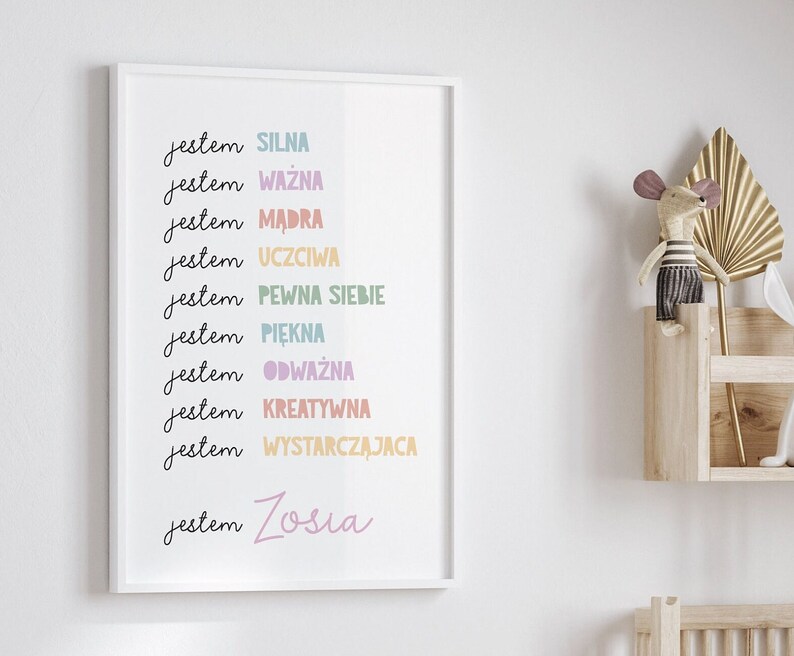 jestem SILNA
jestem WAŻNA
jestem MĄDRA
jestem UCZCIWA
jestem PEWNA SIEBIE
jestem PIĘKNA
jestem ODWAŻNA
jestem KREATYWNA
jestem WYSTARCZĄJACA
jestem Zosia